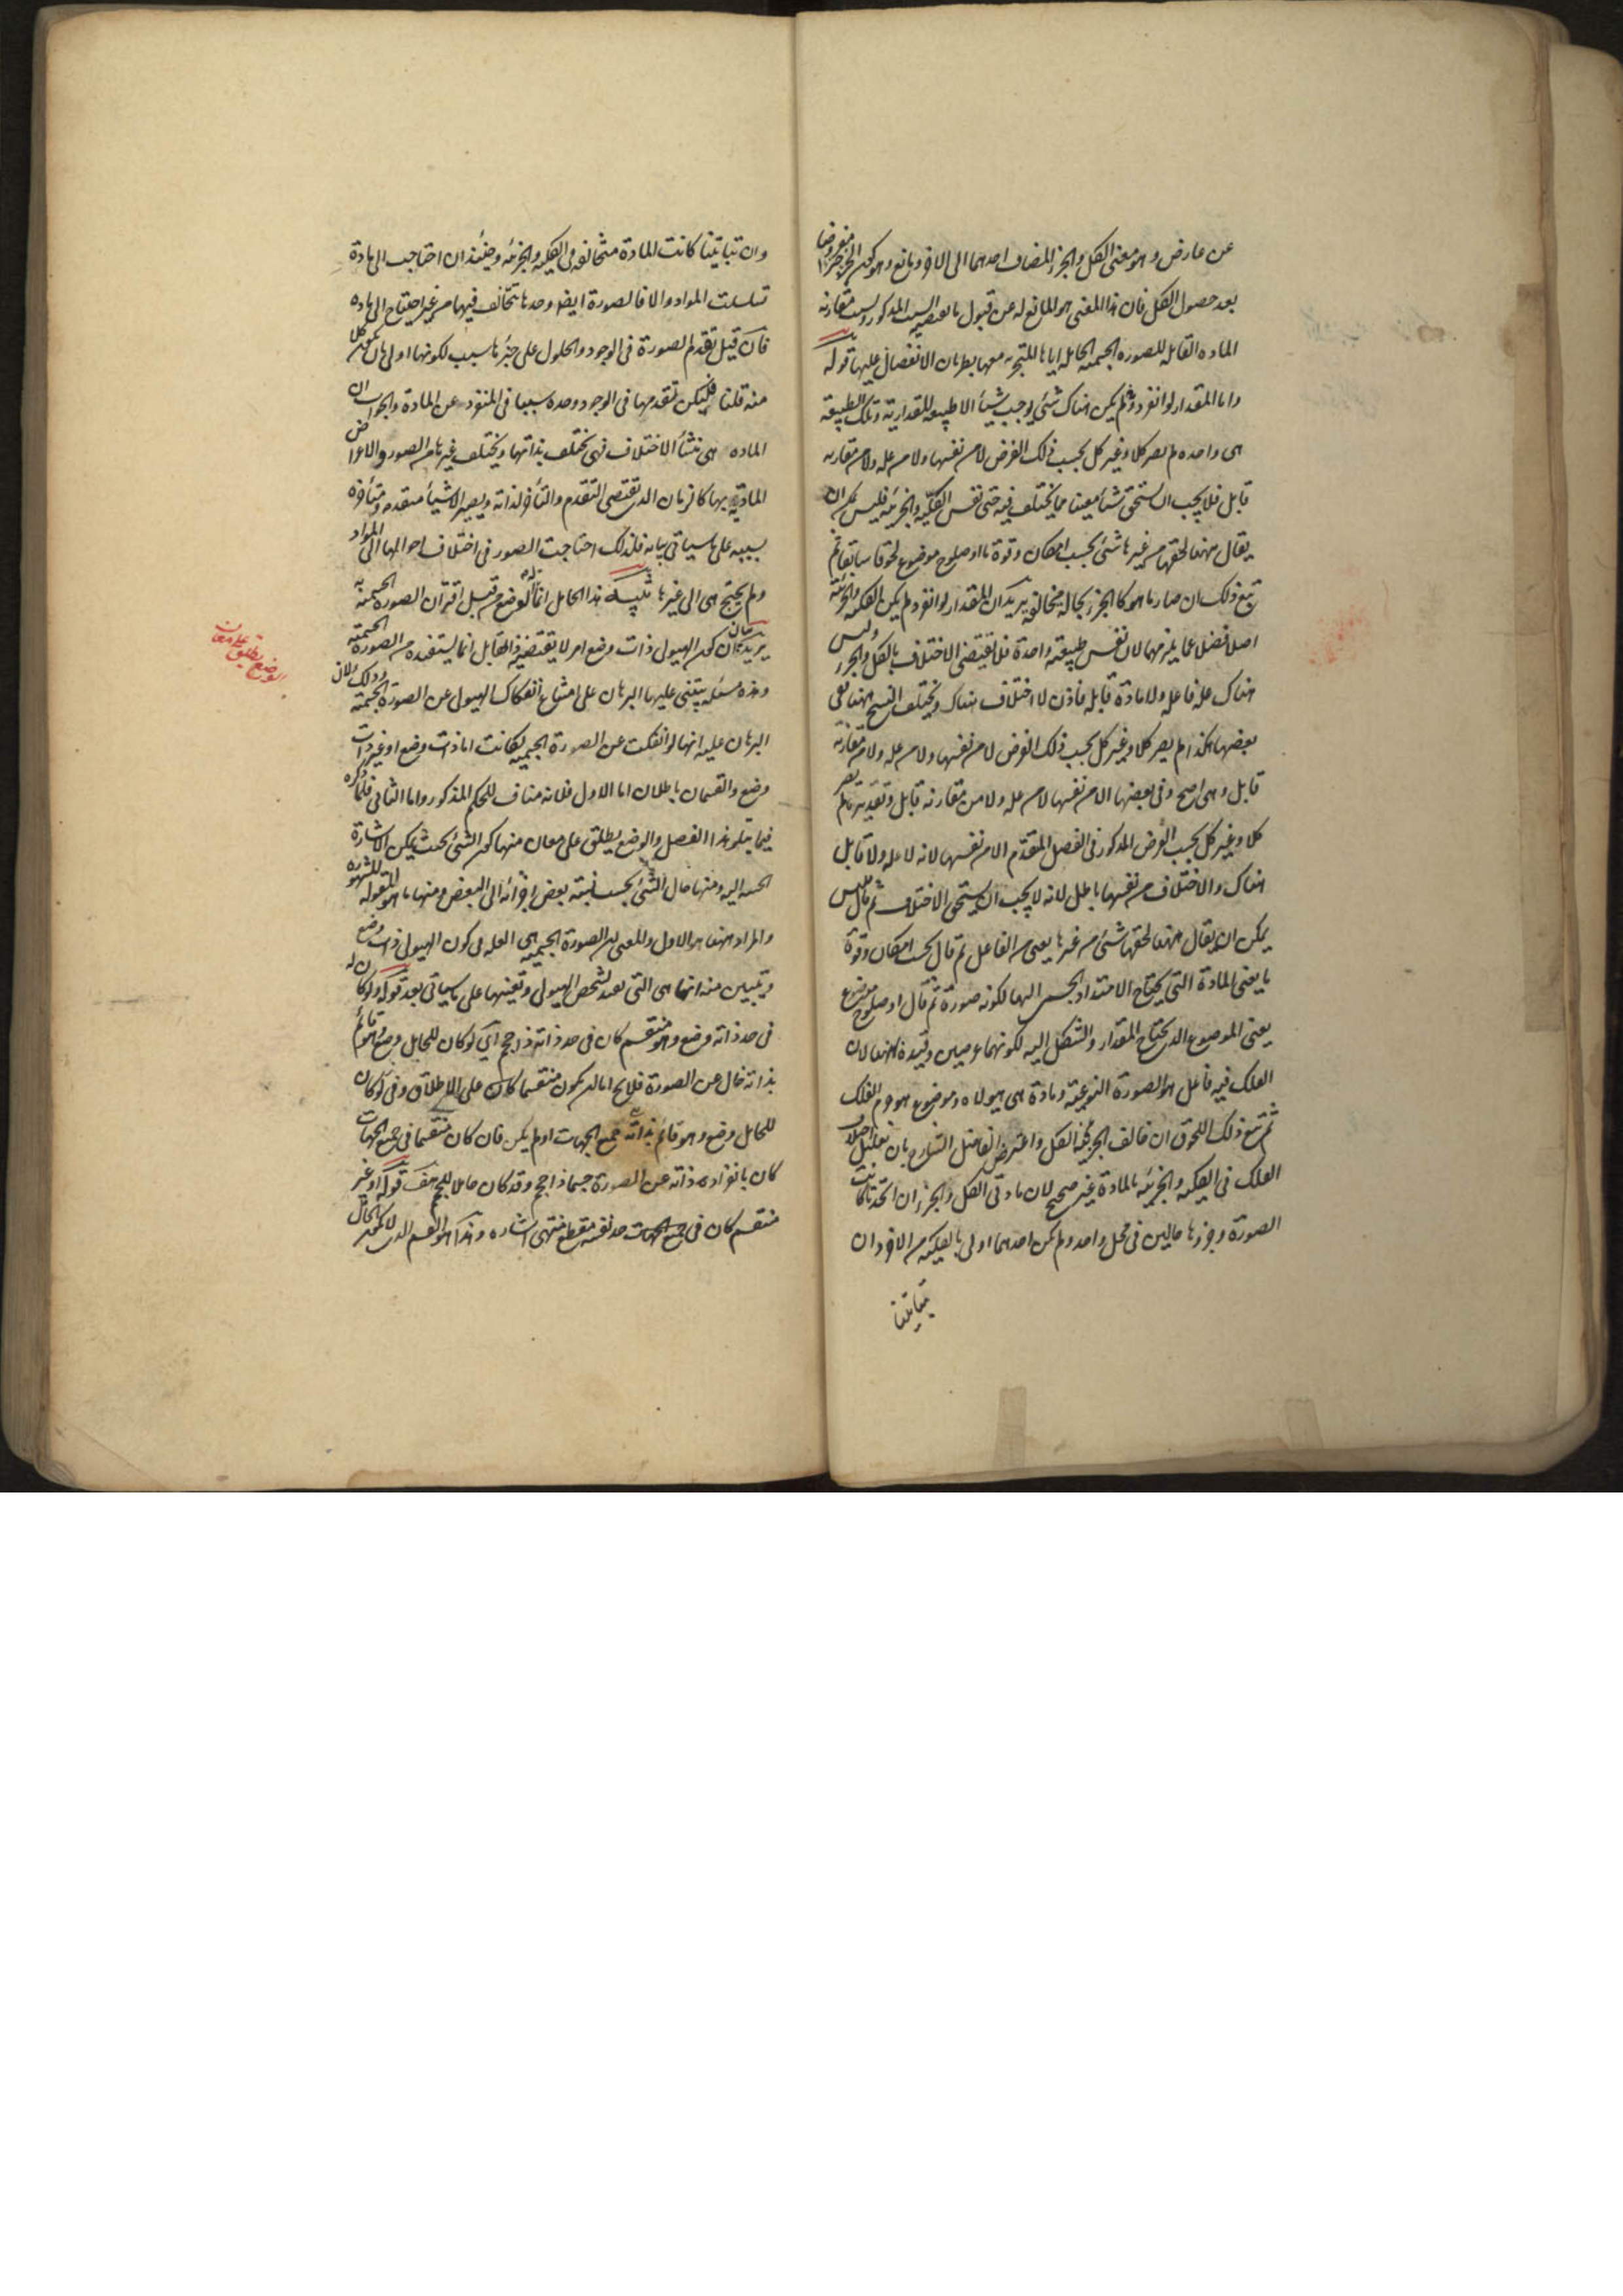 عن عارض وهو معنى الكل والجزء المضاف احدهما الى الاخر ومانع وهو كون الجزء مفروضا
بعد حصول الكل فان هذا المعنى هو المانع له عن قبول ما يقتضيه السبب المذكور وسبب مقارنة
المادة القابلة للصورة الجسمية الحاملة اياها المتجزية معها بطريان الانفصال عليها قوله
واما المقدار لو انفرد ولم يكن هناك شئ يوجب شيأ الا طبيعة المقدارية وتلك الطبيعة
هى واحدة لم يصر كلا وغير كل بحسب ذلك الفرض لا من نفسها ولا من علة ولا من مقارنة
قابل فلا يجب ان يستحق شيأ معينا مما يختلف فيه حتى نفس الكلية والجزئية فليس يمكن ان
يقال ههنا لحقها من غيرها شئ بحسب امكان وقوة ما او صلوح موضوع لحوقا سابقا ثم
تبع ذلك ان صار ما هو كالجزء بحاله مخالفة يريد ان المقدار لو انفرد لم يكن الكلية والجزئية
اصلا فضلا عما يلزمهما لان نفس طبيعته واحدة فلا تقتضى الاختلاف بالكل والجزء وليس
هناك علة فاعلة ولا مادة قابلة فاذن لا اختلاف هناك ويختلف النسخ ههنا ففى
بعضها هكذا لم يصر كلا وغير كل بحسب ذلك الفرض لا من نفسها ولا من علة ولا من مقارنة
قابل وهى اصح وفى بعضها الا من نفسها لا من علة ولا من مقارنة قابل وتقديره لم يصر
كلا وغير كل بحسب الفرض المذكور فى الفصل المتقدم الا من نفسها لانه لا علة ولا قابل
هناك والاختلاف من نفسها باطل لانه لا يجب ان يستحق الاختلاف ثم قال فليس
يمكن ان يقال ههنا لحقها شئ من غيرها يعنى من الفاعل ثم قال بحسب امكان وقوة
ما يعنى المادة التى يحتاج الامتداد الجسمى اليها لكونه صورة ثم قال او صلوح موضوع
يعنى الموضوع الذى يحتاج المقدار والشكل اليه لكونهما عرضين وقيده ههنا لان
الفلك فيه فاعل هو الصورة النوعية ومادة هى هيولاه وموضوع هو جرم الفلك
ثم تبع ذلك اللحوق ان خالف الجزء فيه الكل واعترض الفاضل الشارح بان تعليل اختلاف
الفلك فى الكلية والجزئية بالمادة غير صحيح لان مادتى الكل والجزء ان اتحدتا كانت
الصورة وجزؤها حالين فى محل واحد ولم يكن احدهما اولى بالكلية من الاخر وان
تباينتا
وان تباينتا كانت المادة متخالفة فى الكلية والجزئية وحينئذ ان احتاجت الى مادة
تسلسلت المواد والا فالصورة ايضا وحدها تتخالف فيهما من غير احتياج الى مادة
فان قيل تقدم الصورة فى الوجود والحلول على جزئها سبب لكونها اولى بان تكون كلا
منه قلنا فليكن تقدمها فى الوجود وحده سببا فى المنفرد عن المادة والجواب ان
المادة هى منشأ الاختلاف فهى تختلف بذاتها ويختلف غيرها من الصور والاعراض
المادية بها كالزمان الذى يقتضى التقدم والتأخر لذاته ويصير الاشياء متقدمة ومتأخرة
بسببه على ما سيأتى بيانه فلذلك احتاجت الصور فى اختلاف احوالها الى المواد
ولم يحتج هى الى غيرها تنبيه هذا الحامل انما له الوضع من قبل اقتران الصورة الجسمية
يريد بيان ان كون الهيولى ذات وضع امر لا يقتضيه ذات القابل انما يستفيده من الصورة الجسمية
وهذه مسئلة يبتنى عليها البرهان على امتناع انفكاك الهيولى عن الصورة الجسمية وذلك لان
البرهان عليه انها لو انفكت عن الصورة الجسمية لكانت اما ذات وضع او غير ذات
وضع والقسمان باطلان اما الاول فلانه مناف للحكم المذكور واما الثانى فلما ذكره
فيما يتلو هذا الفصل والوضع يطلق على معان منها كون الشئ بحيث يمكن الاشارة
الحسية اليه ومنها حال الشئ بحسب نسبة بعض اجزائه الى البعض ومنها ما هو المقولة المشهورة
والمراد ههنا هو الاول والمعنى ان الصورة الجسمية هى العلة فى كون الهيولى ذات وضع
ويتبين منه انها هى التى تفيد تشخص الهيولى وتعينها على ما سيأتى بعد قوله ولو كان له
فى حد ذاته وضع وهو منقسم كان فى حد ذاته ذا حجم اى لو كان للحامل وضع وهو قائم
بذاته خال عن الصورة فلا يخ اما ان يكون منقسما كان على الاطلاق وفى لو كان
للحامل وضع وهو قائم بذاته فى جميع الجهات او لم يكن فان كان منقسما فى جميع الجهات
كان بانفراده ذاته عن الصورة جسما ذا حجم وقد كان حاملا للحجم هف قوله او غير
منقسم كان فى جميع الجهات حد نفسه مقطع منتهى اشارة وهذا هو القسم الذى لا يكون الحامل
الوضع يطلق على معان